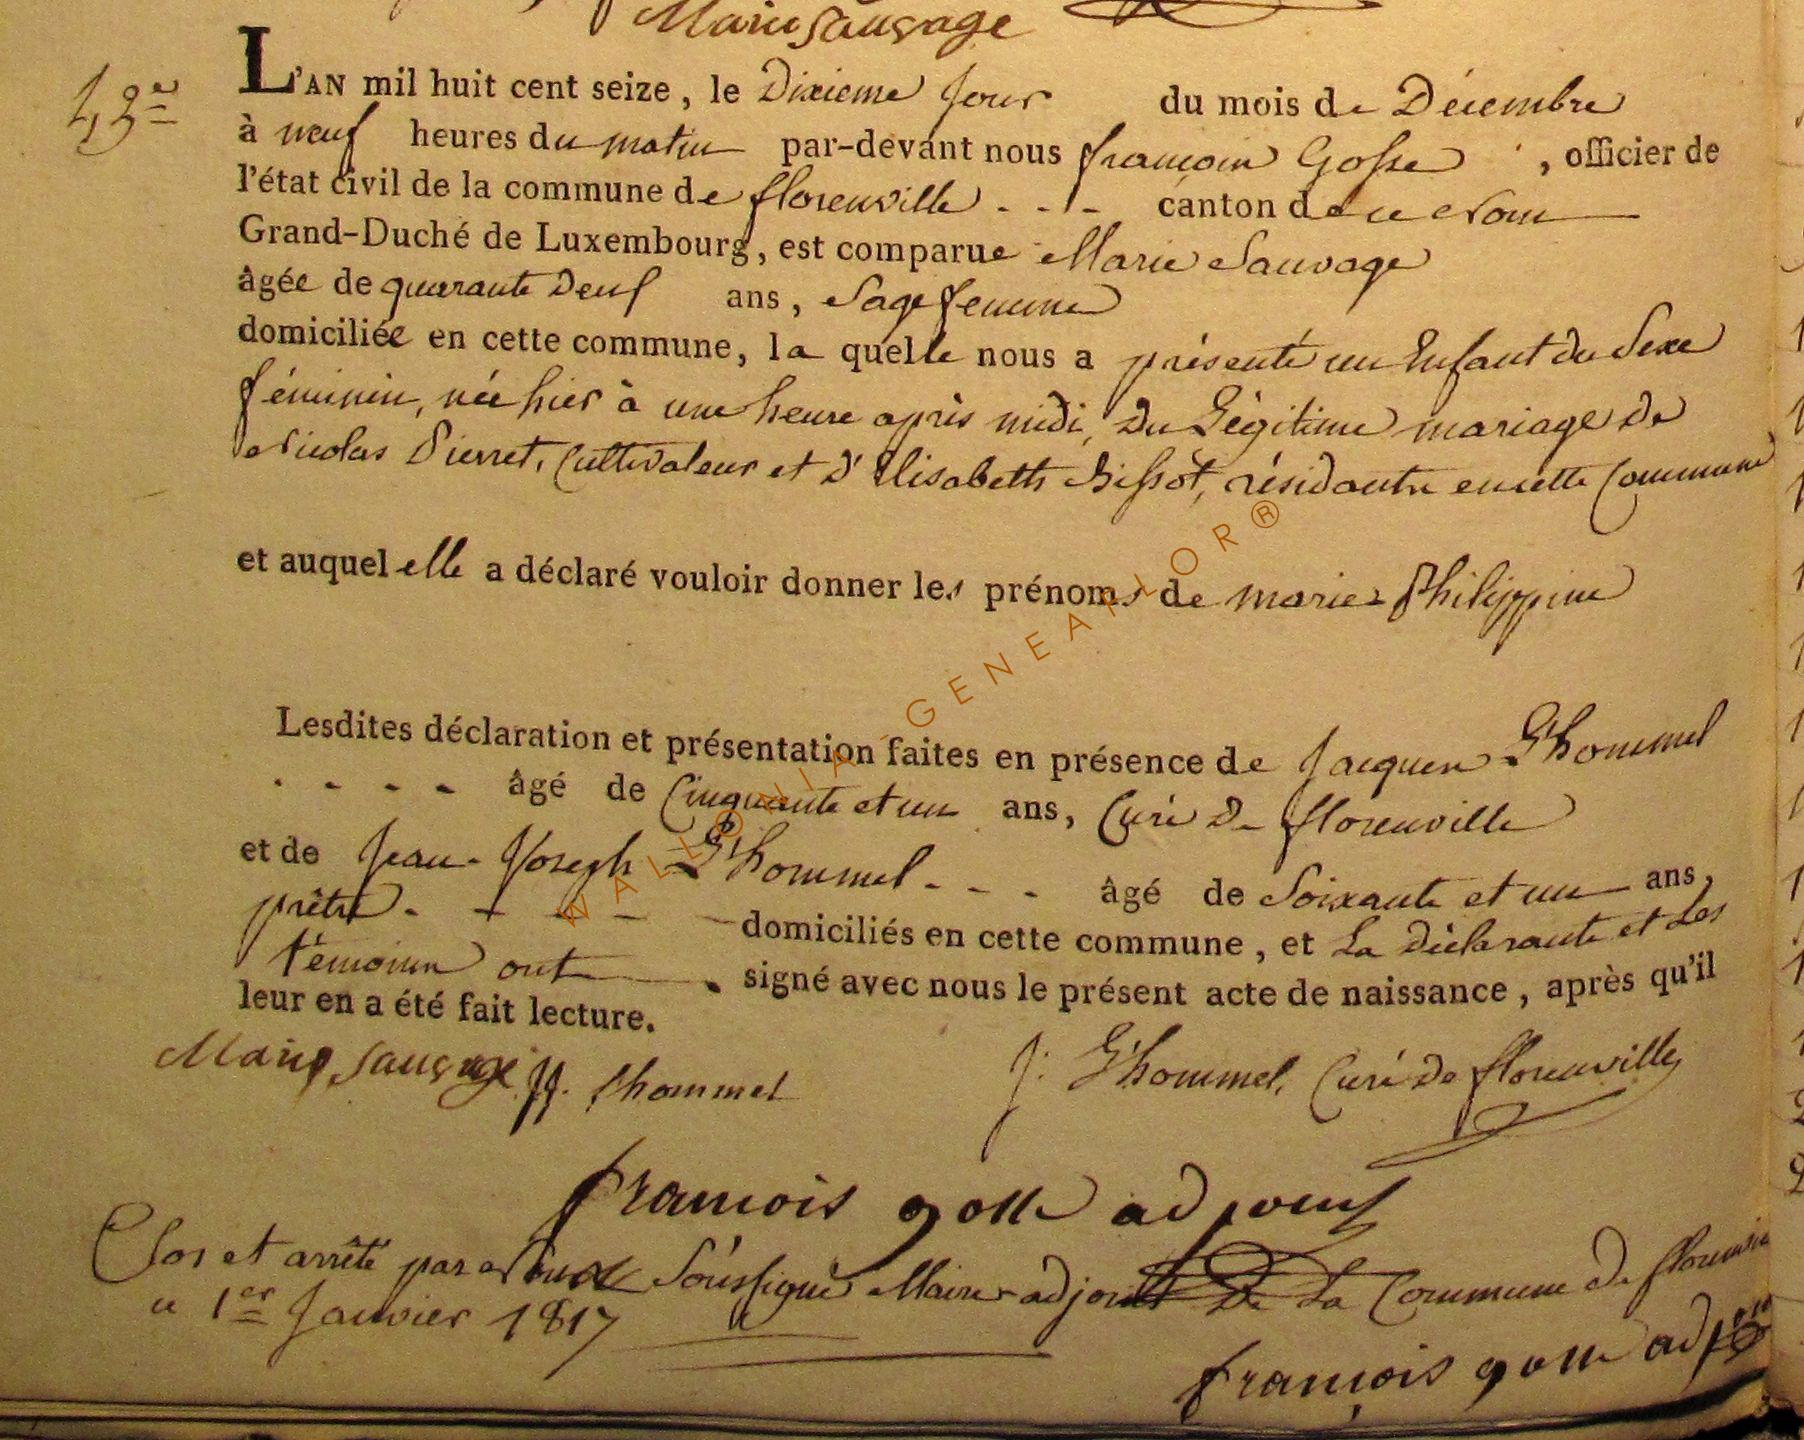 Marie Sauvage
43e
L'AN mil huit cent seize, le Dixieme Jour du mois de Décembre
à neuf heures du matin par-devant nous françois Gosse, officier de
l'état civil de la commune de florenville - - - canton de ce nom
Grand-Duché de Luxembourg, est comparue Marie Sauvage
âgée de quarante Deuf ans, Sage femme
domiciliée en cette commune, la quelle nous a présenté un Enfant du Sexe
féminin, née hier à une heure après midi, Du Légitime mariage de
Nicolas Pierret, Cultivateur et D'Elisabeth Bissot, résidants en cette Commune
et auquel elle a déclaré vouloir donner les prénoms de marie Philippine
Lesdites déclaration et présentation faites en présence de Jacques L'hommel
- - - - âgé de Cinquante et un ans, Curé De florenville
et de Jean-Joseph L'hommel - - - âgé de Soixante et un ans,
prêtre - - - - domiciliés en cette commune, et La Déclarante et Les
témoins ont signé avec nous le présent acte de naissance, après qu'il
leur en a été fait lecture.
Marie Sauvage JJ. Lhommel J: L'hommel, Curé De florenville
françois gosse adjoint
Clos et arrêté par Nous Soussigné Maire adjoint De La Commune de florenville
ce 1er Janvier 1817
françois gosse
WALLONIA - GENEAFLOR®